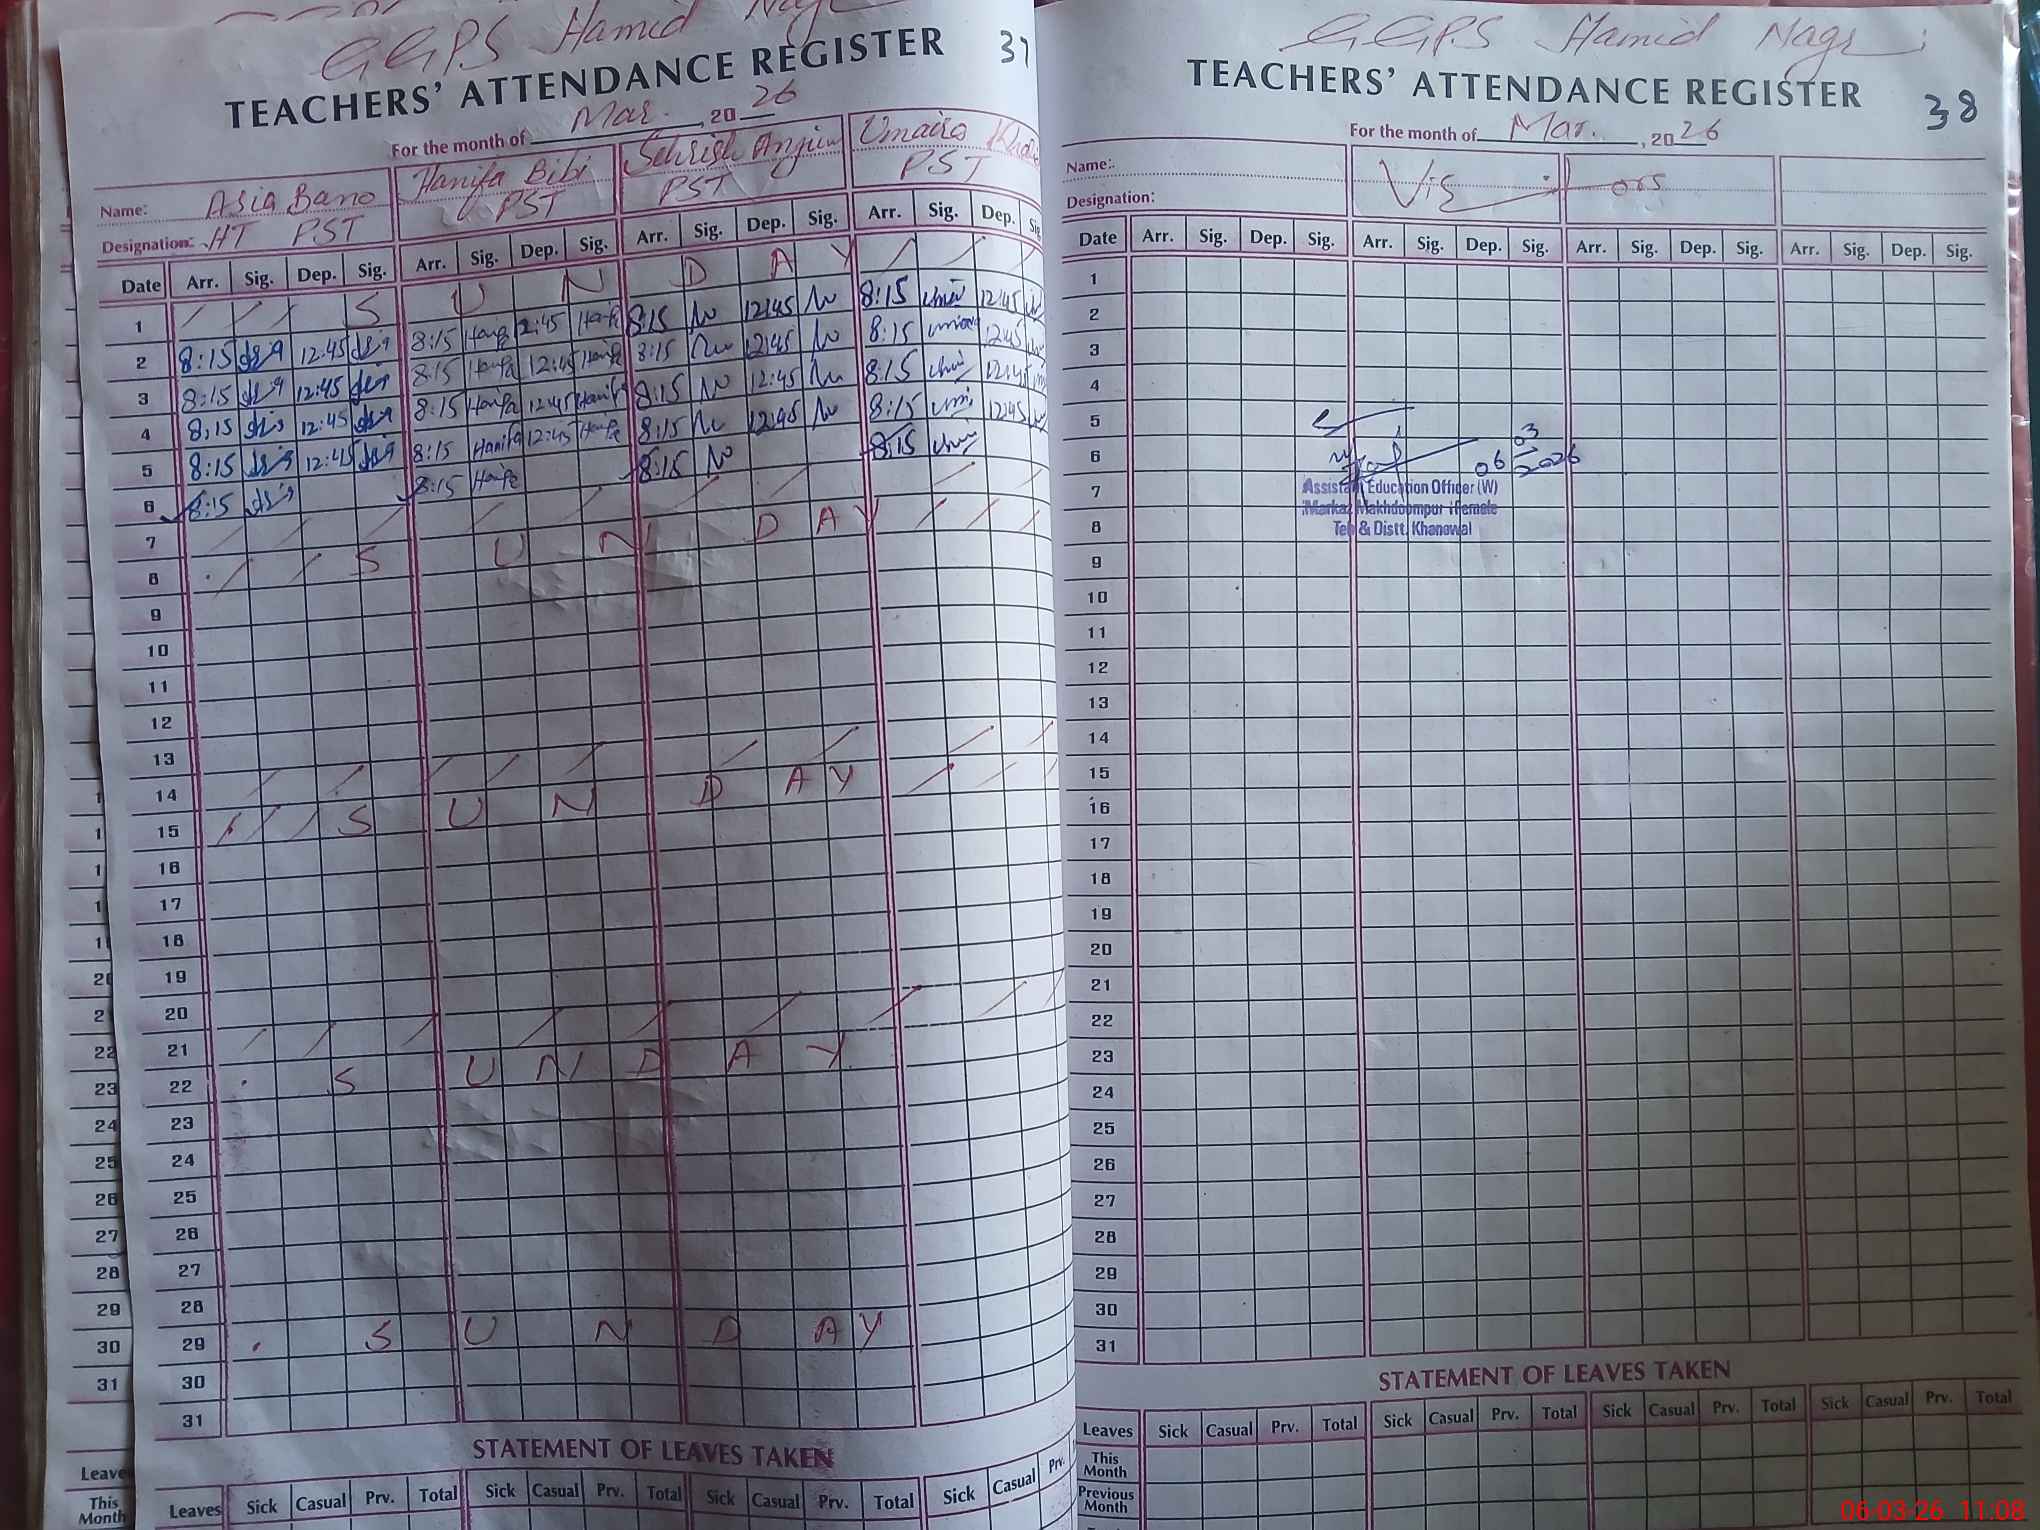 GGPS Hamid Nagr
TEACHERS' ATTENDANCE REGISTER 37
For the month of Mar. , 20 26
Name: Asia Bano Hanifa Bibi Sehrish Anjum Umaira
Designation: HT PST PST PST PST
Date Arr. Sig. Dep. Sig. Arr. Sig. Dep. Sig. Arr. Sig. Dep. Sig. Arr. Sig. Dep. Sig.
1 S U N D A Y
2 8:15 12:45 8:15 12:45 8:15 12:45 8:15 12:45
3 8:15 12:45 8:15 12:45 8:15 12:45 8:15 12:45
4 8:15 12:45 8:15 Hanifa 12:45 Hanifa 8:15 12:45 8:15 12:45
5 8:15 12:45 8:15 Hanifa 12:45 8:15 12:45 8:15 12:45
6 8:15 8:15 8:15 8:15
7
8 S U N D A Y
9
10
11
12
13
14
15 S U N D A Y
16
17
18
19
20
21
22 S U N D A Y
23
24
25
26
27
28
29 S U N D A Y
30
31
STATEMENT OF LEAVES TAKEN
Leaves Sick Casual Prv. Total Sick Casual Prv. Total Sick Casual Prv. Total Sick Casual Prv.
22
23
24
25
26
27
28
29
30
31
This
Month
GGPS Hamid Nagr
TEACHERS' ATTENDANCE REGISTER 38
For the month of Mar. , 20 26
Name: Visitors
Designation:
Date Arr. Sig. Dep. Sig. Arr. Sig. Dep. Sig. Arr. Sig. Dep. Sig. Arr. Sig. Dep. Sig.
1
2
3
4
5
6
06 03 2026
7 Assistant Education Officer (W)
Markaz Makhdoompur Female
8 Teh & Distt. Khanewal
9
10
11
12
13
14
15
16
17
18
19
20
21
22
23
24
25
26
27
28
29
30
31
STATEMENT OF LEAVES TAKEN
Leaves Sick Casual Prv. Total Sick Casual Prv. Total Sick Casual Prv. Total Sick Casual Prv. Total
This
Month
Previous
Month
06-03-26 11:08